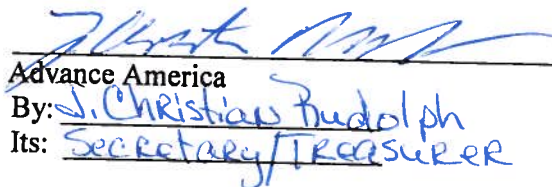 Advance America
By: J. Christian Rudolph
Its: Secretary/Treasurer